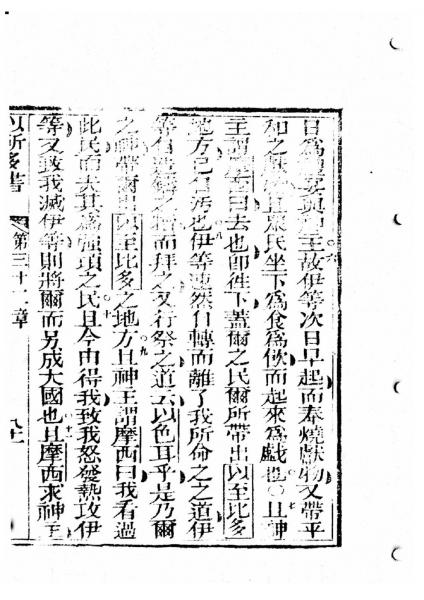 日爲與神主故伊等次日早起而奉燒獻物又帶平
和之且衆民坐下爲食爲飲而起來爲戲也○且神
主謂曰去也卽徃下蓋爾之民爾所帶出以至比多
地方已自污也伊等速然自轉而離了我所命之之道伊
等自造鑄之而拜之又行祭之道云以色耳乎是乃爾
之神帶爾出以至比多之地方且神主謂摩西曰我看過
此民而夫其爲強項之民且今由得我致我怒發熱攻伊
等又致我滅伊等則將爾而另成大國也且摩西求神主
以所多書 第三十二章